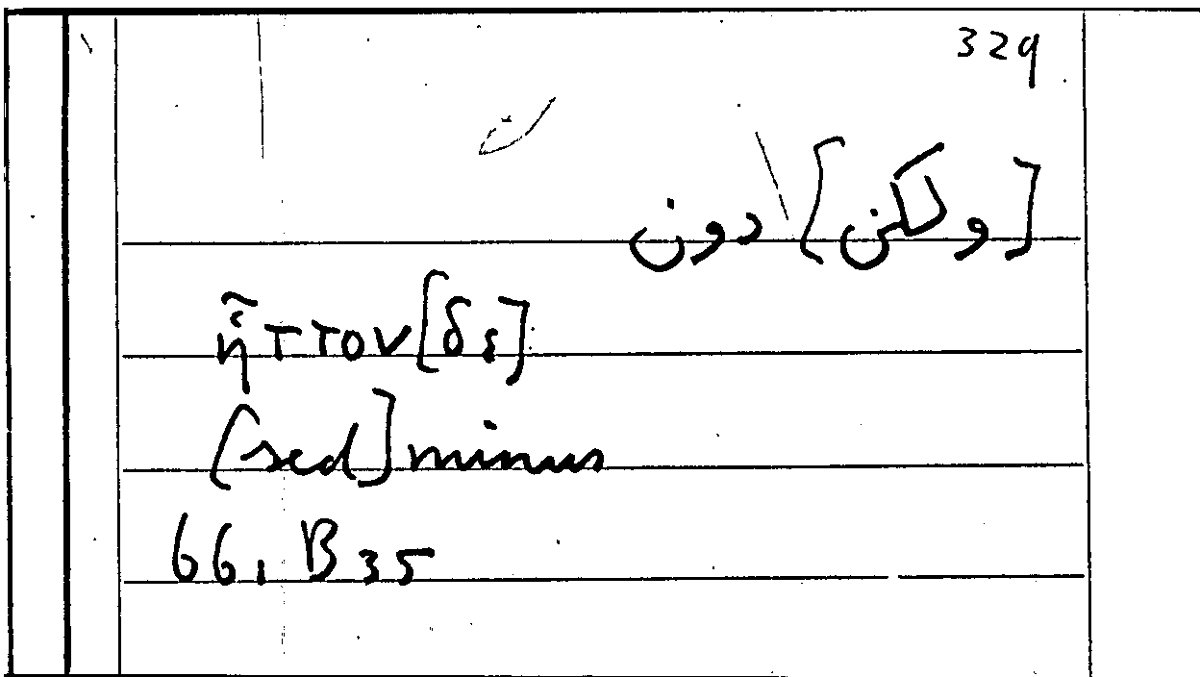 329
[ولكن] دون
ἧττον [δὲ]
[sed] minus
66, B 35